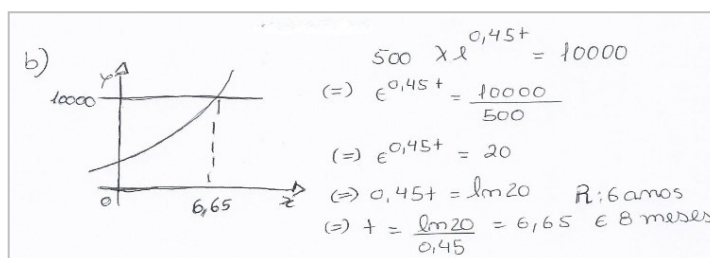 b)
y
10000
0
6,65
x
500 × e^0,45t = 10000
(=) e^0,45t = 10000/500
(=) e^0,45t = 20
(=) 0,45t = ln20 R: 6 anos
(=) t = ln20/0,45 = 6,65 e 8 meses